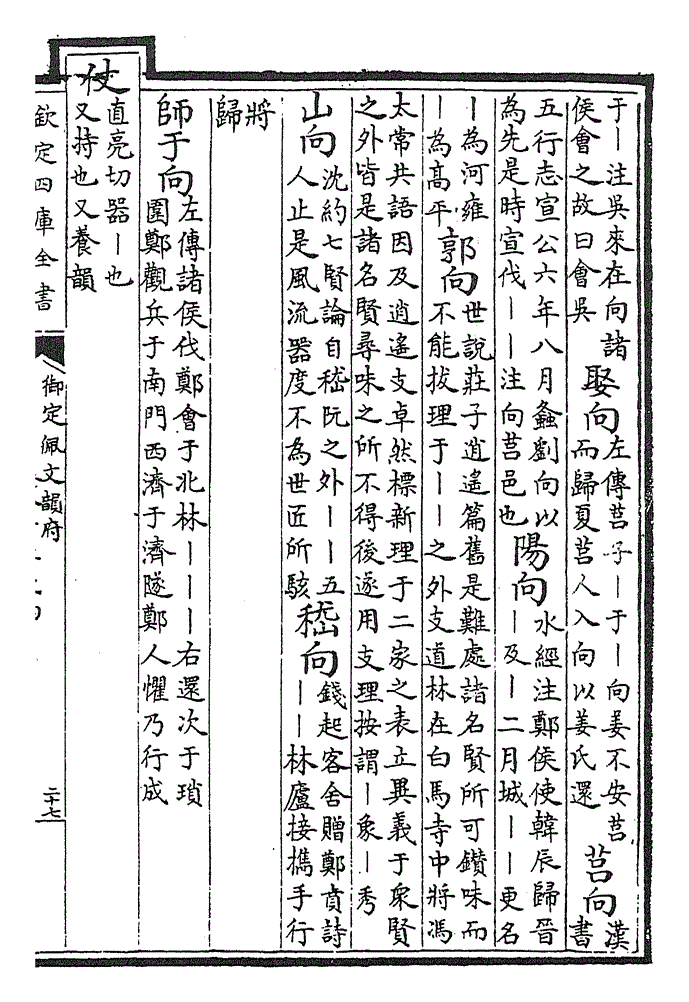 于｜注吳來在向諸
侯會之故曰會吳
娶向
左傳莒子｜于｜向姜不安莒
而歸夏莒人入向以姜氏還
莒向
漢
書
五行志宣公六年八月螽劉向以
為先是時宣伐｜｜注向莒邑也
陽向
水經注鄭侯使韓辰歸晉
｜及｜二月城｜｜更名
｜為河雍
｜為高平
郭向
世說莊子逍遙篇舊是難處諸名賢所可鑽味而
不能拔理于｜｜之外支道林在白馬寺中將馮
太常共語因及逍遙支卓然標新理于二家之表立異義于衆賢
之外皆是諸名賢尋味之所不得後遂用支理按謂｜象｜秀
山向
沈約七賢論自嵇阮之外｜｜五
人止是風流器度不為世匠所駭
嵇向
錢起客舍贈鄭賁詩
｜｜林廬接攜手行
將
歸
師于向
左傳諸侯伐鄭會于北林｜｜｜右還次于瑣
圍鄭觀兵于南門西濟于濟隧鄭人懼乃行成
仗
直亮切器｜也
又持也又養韻
欽定四庫全書
御定佩文韻府
二十七